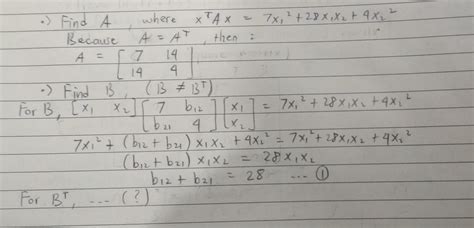 •) Find A, where xᵀAx = 7x₁² + 28x₁x₂ + 4x₂²
Because A = Aᵀ, then :
A = [ 7 14
14 4 ]
•) Find B, (B ≠ Bᵀ)
For B, [x₁ x₂] [ 7 b₁₂
b₂₁ 4 ] [ x₁
x₂ ] = 7x₁² + 28x₁x₂ + 4x₂²
7x₁² + (b₁₂ + b₂₁) x₁x₂ + 4x₂² = 7x₁² + 28x₁x₂ + 4x₂²
(b₁₂ + b₂₁) x₁x₂ = 28x₁x₂
b₁₂ + b₂₁ = 28 ... ①
For Bᵀ, ... (?)